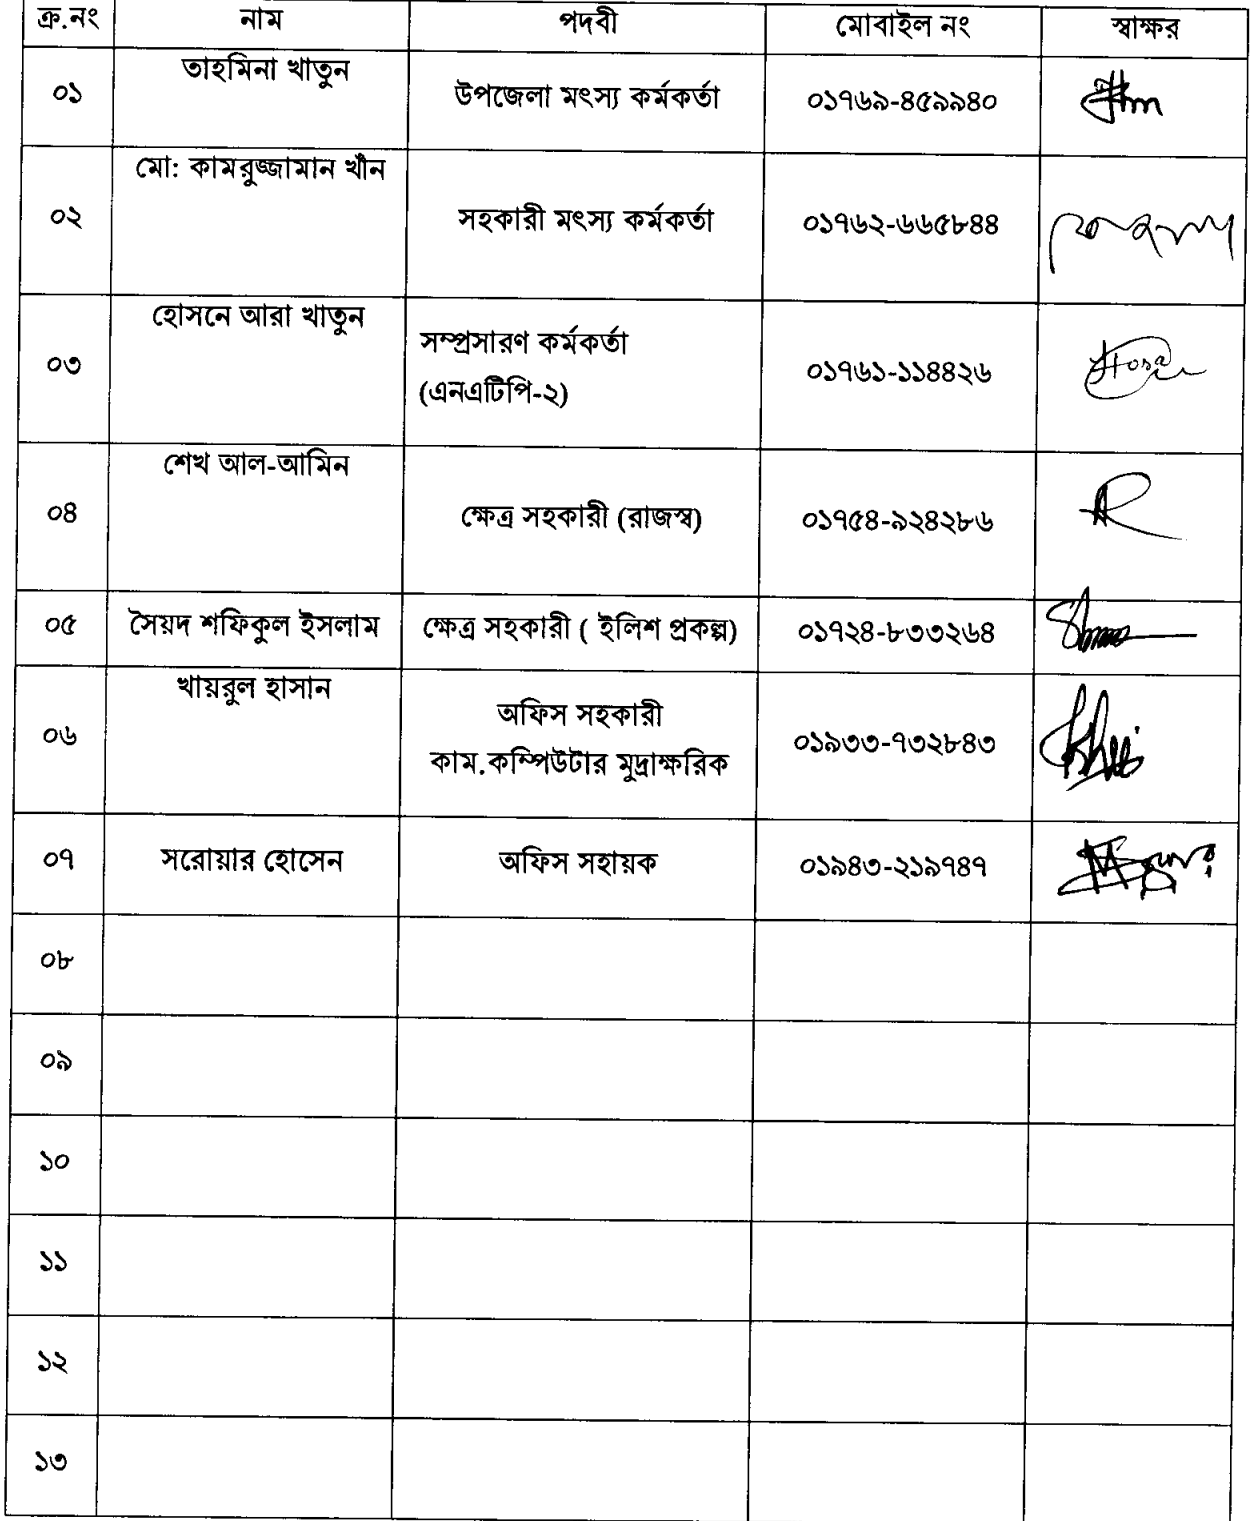 ক্র.নং নাম পদবী মোবাইল নং স্বাক্ষর
০১ তাহমিনা খাতুন উপজেলা মৎস্য কর্মকর্তা ০১৭৬৯-৪৫৯৯৪০
০২ মো: কামরুজ্জামান খাঁন সহকারী মৎস্য কর্মকর্তা ০১৭৬২-৬৬৫৮৪৪
০৩ হোসনে আরা খাতুন সম্প্রসারণ কর্মকর্তা
(এনএটিপি-২) ০১৭৬১-১১৪৪২৬
০৪ শেখ আল-আমিন ক্ষেত্র সহকারী (রাজস্ব) ০১৭৫৪-৯২৪২৮৬
০৫ সৈয়দ শফিকুল ইসলাম ক্ষেত্র সহকারী ( ইলিশ প্রকল্প) ০১৭২৪-৮৩৩২৬৪
০৬ খায়রুল হাসান অফিস সহকারী
কাম.কম্পিউটার মুদ্রাক্ষরিক ০১৯৩৩-৭৩২৮৪৩
০৭ সরোয়ার হোসেন অফিস সহায়ক ০১৯৪৩-২১৯৭৪৭
০৮
০৯
১০
১১
১২
১৩